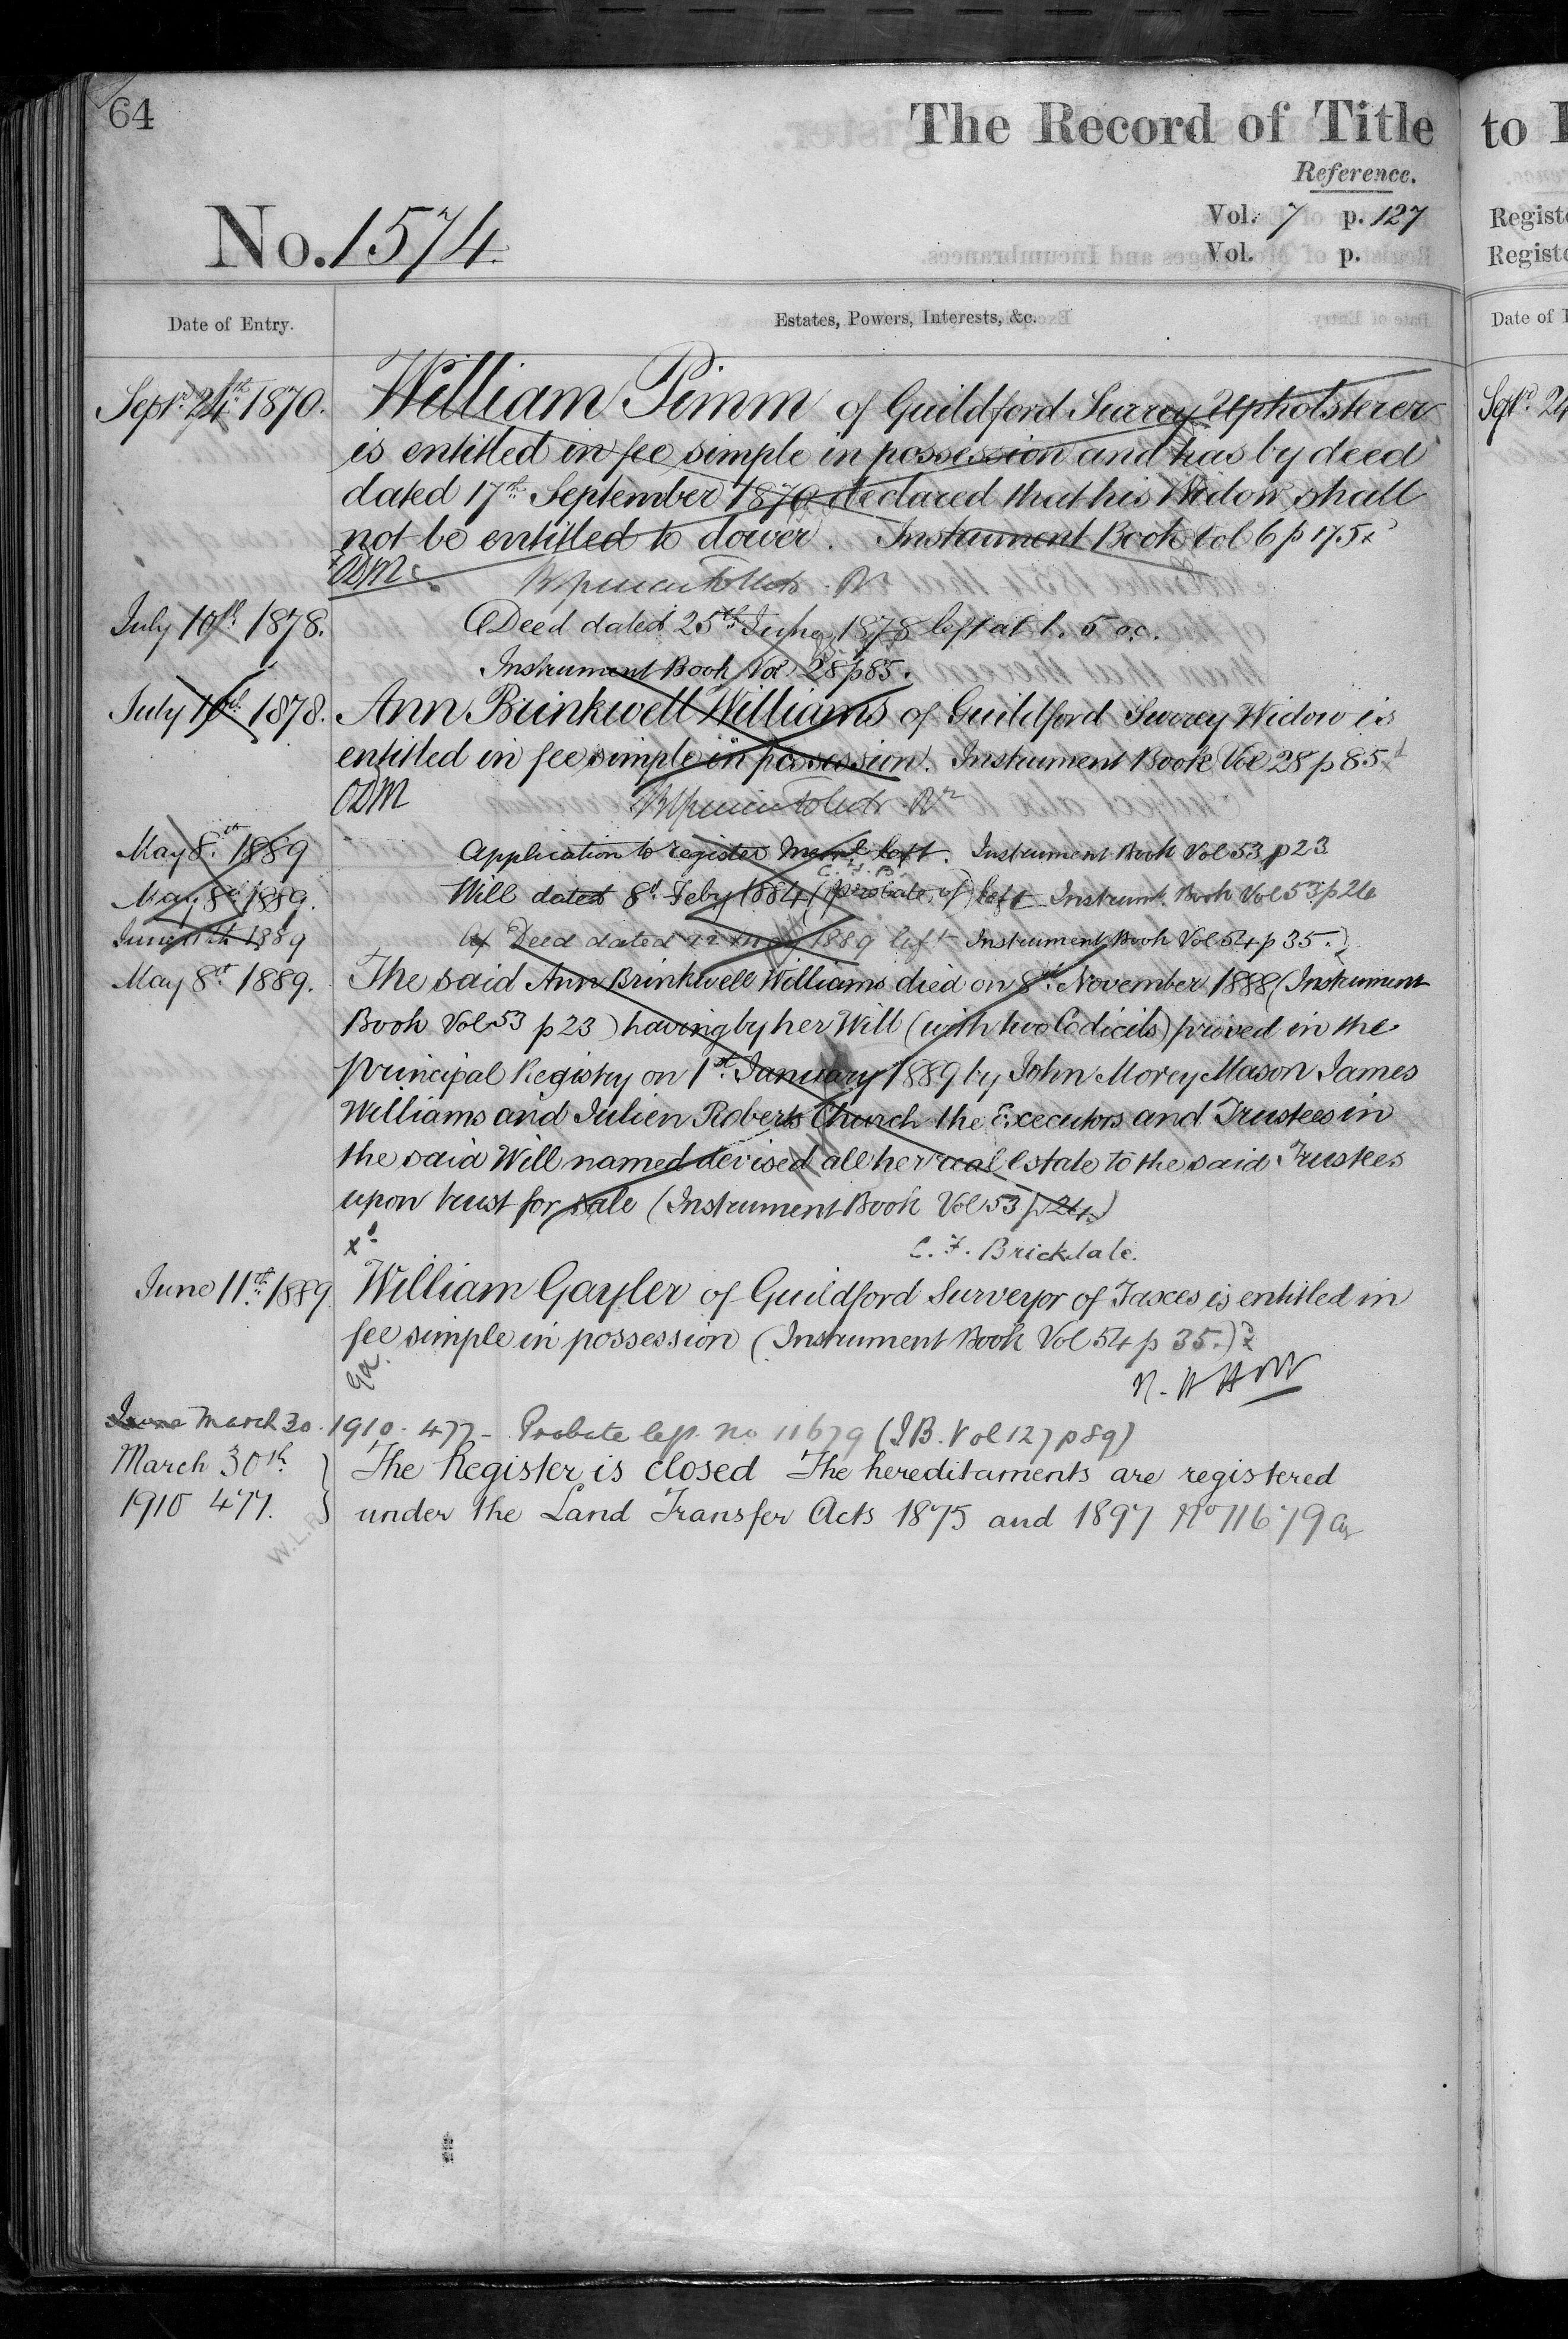 64
The Record of Title
Reference.
Vol. 7 p. 127
Vol. p.
No. 1574
Date of Entry.
Estates, Powers, Interests, &c.
Septr. 24th 1870. William Pimm of Guildford Surrey Upholsterer
is entitled in fee simple in possession and has by deed
dated 17th September 1870 declared that his Widow shall
not be entitled to dower. Instrument Book Vol 6 p 175
ODM
July 10th 1878. A Deed dated 25th June 1878 left at 1. 5 oc.
Instrument Book Vol 28 p 85.
July 10th 1878. Ann Brinkwell Williams of Guildford Surrey Widow is
entitled in fee simple in possession. Instrument Book Vol 28 p 85
ODM
May 8th 1889 Application to register left. Instrument Book Vol 53 p 23
C. F. B.
May 8th 1889. Will dated 8th Feby 1884 (probate of) left Instrumt. Book Vol 53 p 24
June 11th 1889 A Deed dated 22 May 1889 left Instrument Book Vol 54 p 35.
May 8th 1889. The said Ann Brinkwell Williams died on 8th November 1888 (Instrument
Book Vol 53 p 23) having by her Will (with two Codicils) proved in the
principal Registry on 1st January 1889 by John Morey Mason James
Williams and Julien Roberts Church the Executors and Trustees in
the said Will named devised all her real Estate to the said Trustees
upon trust for sale (Instrument Book Vol 53 p 24)
C. F. Brickdale.
June 11th 1889 William Gayler of Guildford Surveyor of Taxes is entitled in
fee simple in possession (Instrument Book Vol 54 p 35.)
June March 30. 1910. 477 - Probate left. no 11679 (I B. Vol 127 p 89)
March 30th The Register is closed The hereditaments are registered
1910 477. under the Land Transfer Acts 1875 and 1897 No 11679
W.L.R.
to
Regist
Regist
Date of
Septr. 24